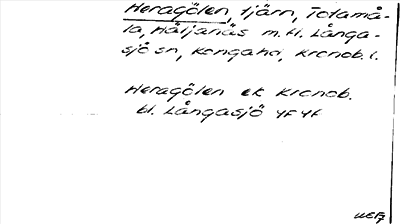 Heragölen, tjärn, Totamå-
la, Häljanäs m. fl. Långa-
sjö sn, Konga hd, Kronob. l.
Heragölen ek Kronob.
bl. Långasjö 4F 4f